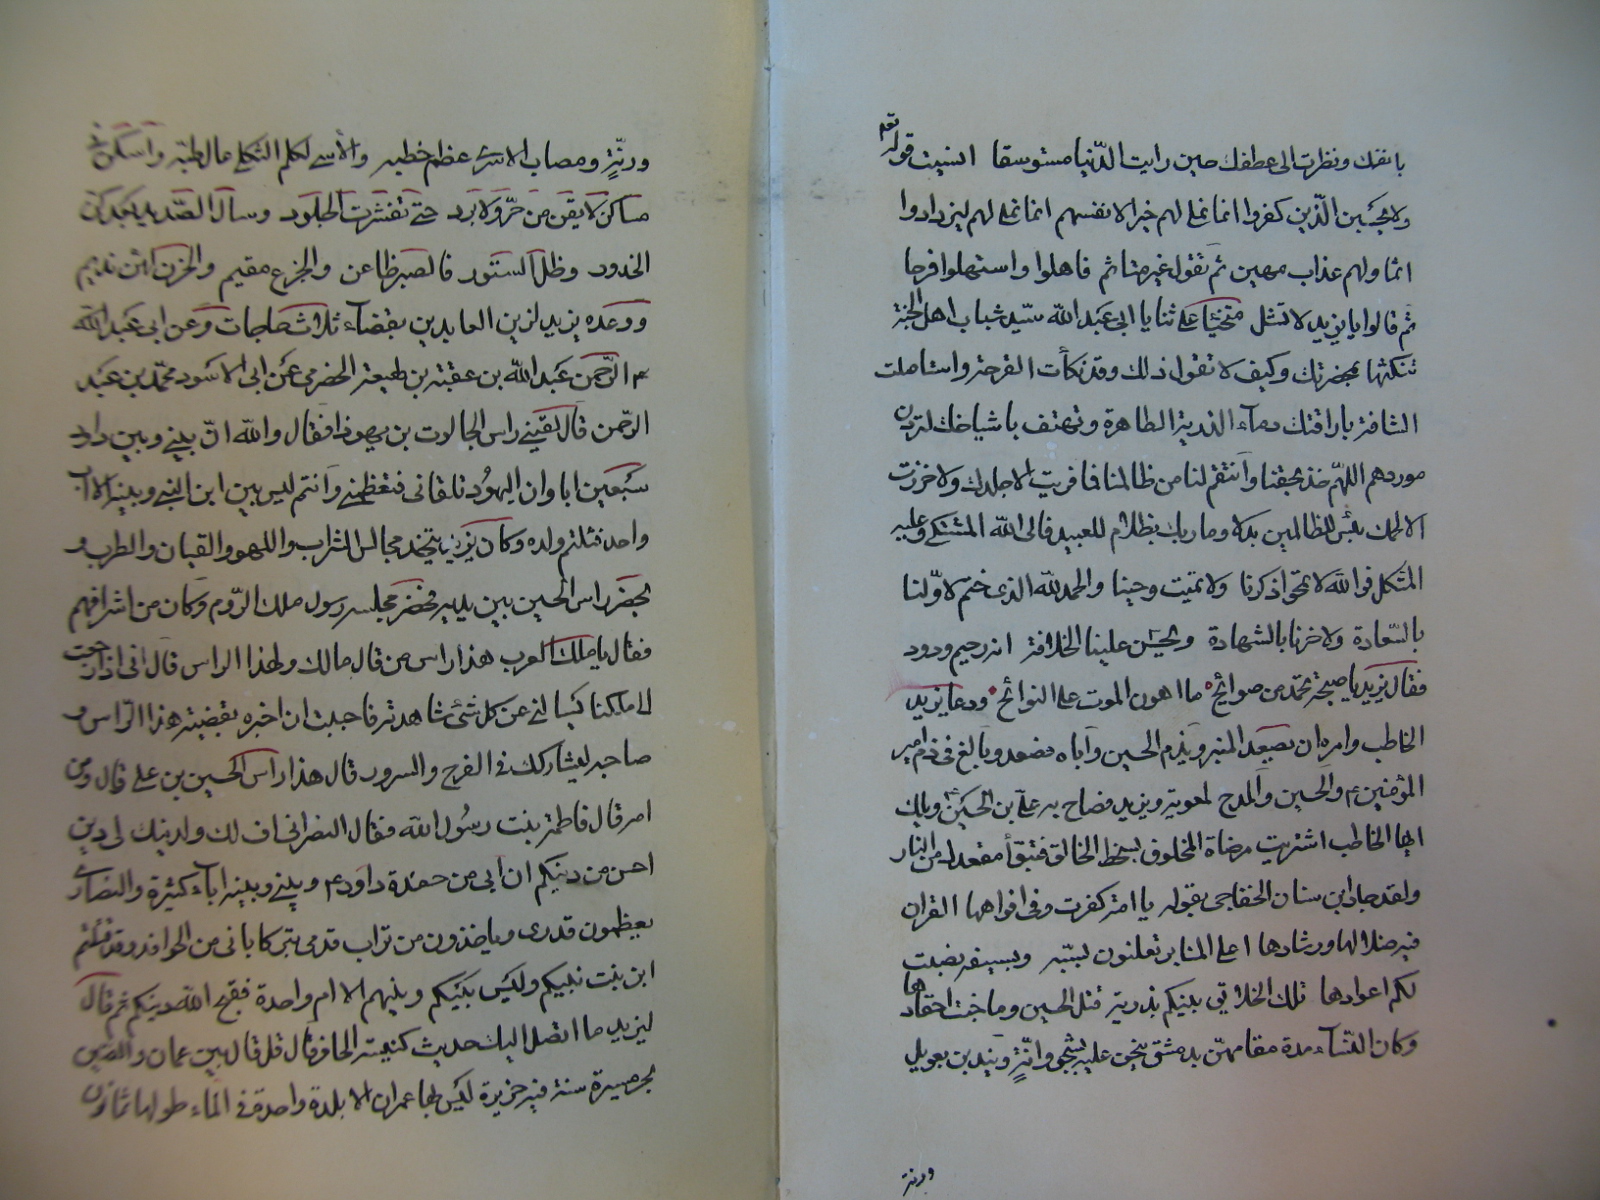 بانفك ونظرت الى عطفك حين رايت الدنيا مستوسقا انسيت قوله تعم
ولا يحسبن الذين كفروا انما نملى لهم خير لانفسهم انما نملى لهم ليزدادوا
اثما ولهم عذاب مهين ثم تقول غير متاثم فاهلوا واستهلوا فرحا
ثم قالوا يا يزيد لا تشل منحنيا على ثنايا ابى عبد الله سيد شباب اهل الجنة
تنكتها بمخصرتك وكيف لا تقول ذلك وقد نكأت القرحة واستاصلت
الشافة باراقتك دماء الذرية الطاهرة وتهتف باشياخك لتردن
موردهم اللهم خذ بحقنا وانتقم لنا من ظالمنا فما فريت الا جلدك ولا حززت
الا لحمك بئس للظالمين بدلا وما ربك بظلام للعبيد فالى الله المشتكى وعليه
المتكل فوالله لا تمحوا ذكرنا ولا تميت وحينا والحمد لله الذى ختم لاولنا
بالسعادة ولاخرنا بالشهادة ويحسن علينا الخلافة انه رحيم ودود
فقال يزيد يا صيحة تحمد من صوائح ما اهون الموت على النوائح ودعا يزيد
الخاطب وامره ان يصعد المنبر ويذم الحسين واباه فصعد وبالغ فى ذم امير
المؤمنين والحسين والمدح لمعوية ويزيد فصاح به على بن الحسين ويلك
ايها الخاطب اشتريت مرضاة المخلوق بسخط الخالق فتبوأ مقعدك من النار
ولقد اجاد ابن سنان الخفاجى بقوله يا امة كفرت وفى افواهها القران
فيه ضلالها ورشادها اعلى المنابر تعلنون بسبه وبسيفه نصبت
لكم اعوادها تلك الخلائق بينكم بدرية قتل الحسين وما خبت احقادها
وكان النساء مدة مقامهن بدمشق ينحن عليه بشجو وانة ويندبن بعويل
ورنة
ورنة ومصاب الاسرى عظم خطبه والاسى لكلم الثكلى عال طبه واسكن فى
مساكن لا يقين من حر ولا برد حتى تقشرت الجلود وسال الصديد بعد كن
الخدود وظل الستور فالصبر ظاعن والجزع مقيم والحزن لهن نديم
ووعده يزيد لزين العابدين بقضاء ثلاث حاجات وعن ابى عبد الله
الرحمن عبد الله بن عقبة بن لهيعة الحضرمى عن ابى الاسود محمد بن عبد
الرحمن قال لقينى راس الجالوت بن يهوذا فقال والله ان بينى وبين داود
سبعين ابا وان اليهود تلقانى فتعظمنى وانتم ليس بين ابن النبى وبينه الا اب
واحد قتلتم ولده وكان يزيد يتخذ مجالس الشراب واللهو والقيان والطرب و
يحضر راس الحسين بين يديه فحضر مجلسه رسول ملك الروم وكان من اشرافهم
فقال يا ملك العرب هذا راس من قال مالك ولهذا الراس قال انى اذا رجعت
الى ملكنا يسالنى عن كل شئ شاهدته فاحببت ان اخبره بقضية هذا الراس و
صاحبه ليشاركك فى الفرح والسرور قال هذا راس الحسين بن على قال ومن
امه قال فاطمة بنت رسول الله فقال النصرانى اف لك ولدينك لى دين
احسن من دينكم ان ابى من حفدة داود وبينى وبينه اباء كثيرة والنصارى
يعظمون قدرى وياخذون من تراب قدمى تبركا بانى من الحوافد وقد قتلتم
ابن بنت نبيكم وليس بينكم وبينهم الا ام واحدة فقبح الله دينكم ثم قال
ليزيد ما اتصل اليك حديث كنيسة الحافر قال قل قال بين عمان والصين
بحر مسيرة سنة فيه جزيرة ليس بها عمران الا بلدة واحدة فى الماء طولها ثمانون